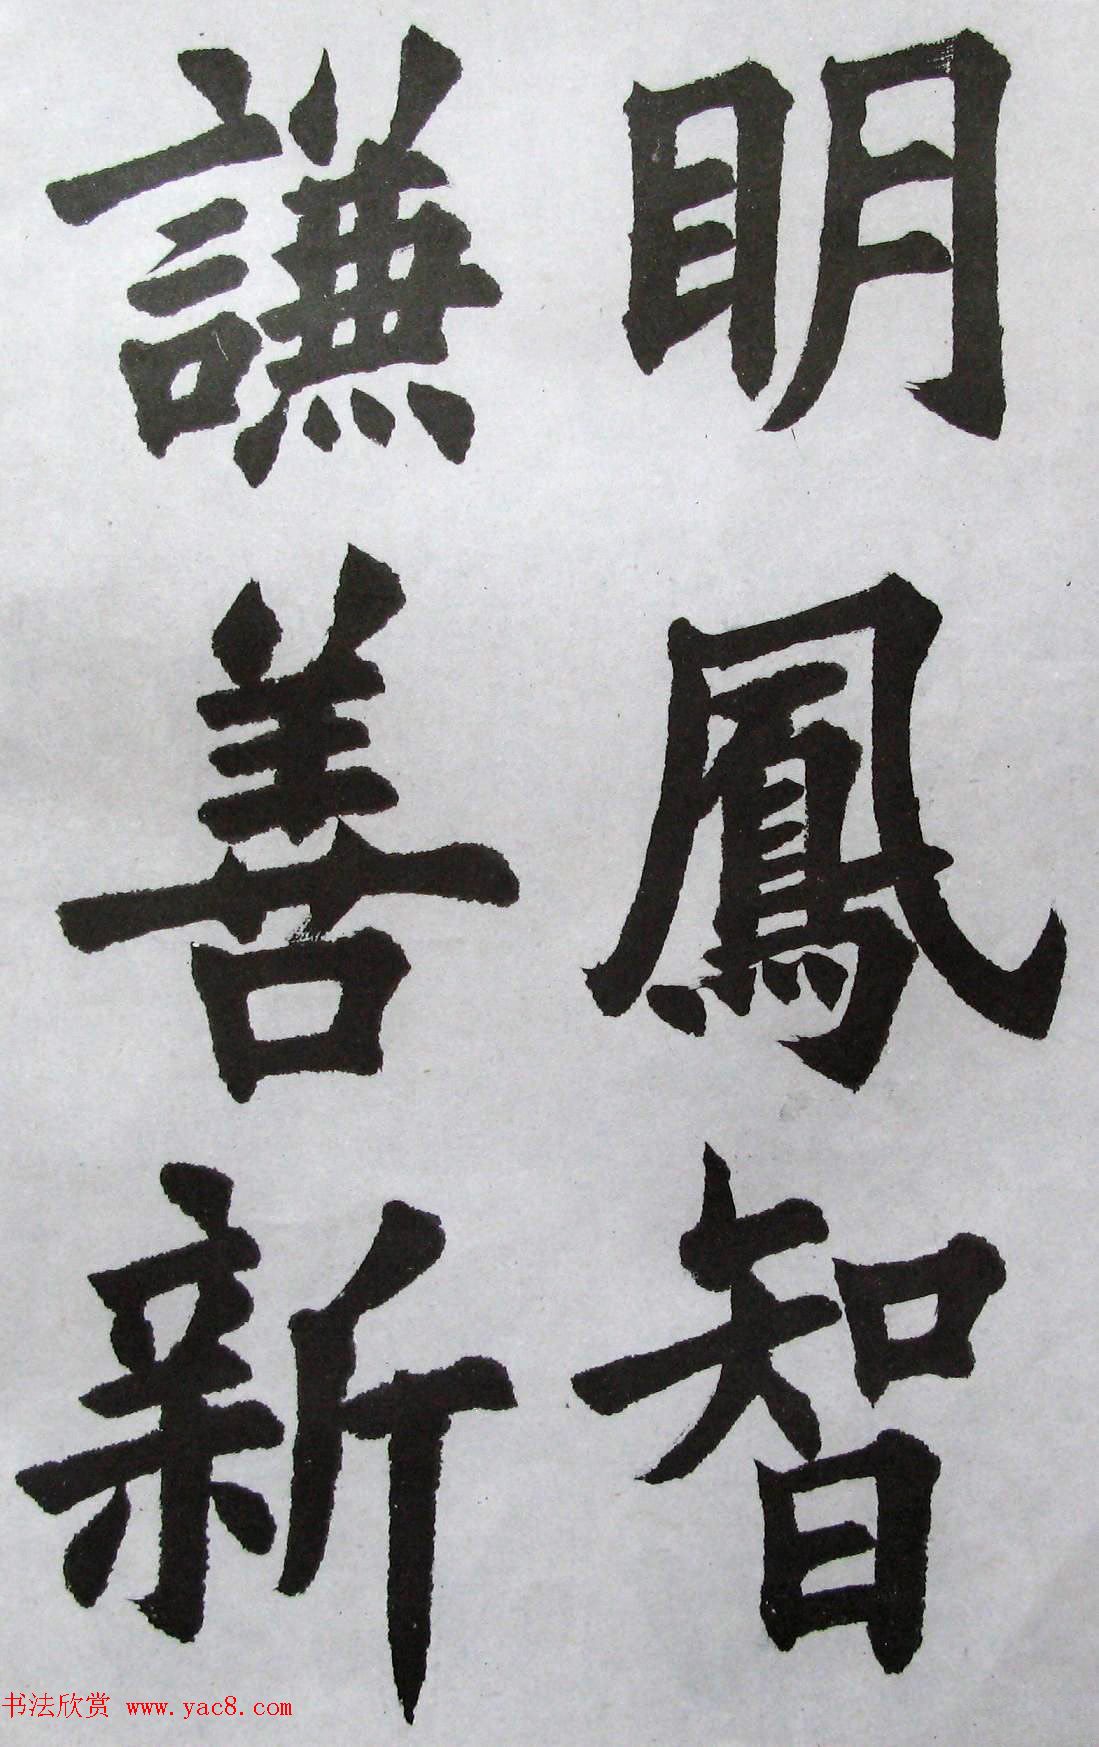 明鳳智
謙善新
书法欣赏 www.yac8.com